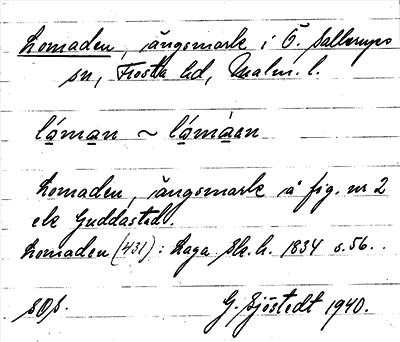 Lomaden, ängsmark i Ö. Sallerups
sn, Frosta hd, Malm. l.
lóman ~ lómáen
Lomaden, ängsmark å fig. nr 2
ek Guddastad.
Lomaden (431): Laga sk. h. 1834 s. 56.
SOs. G. Sjöstedt 1940.